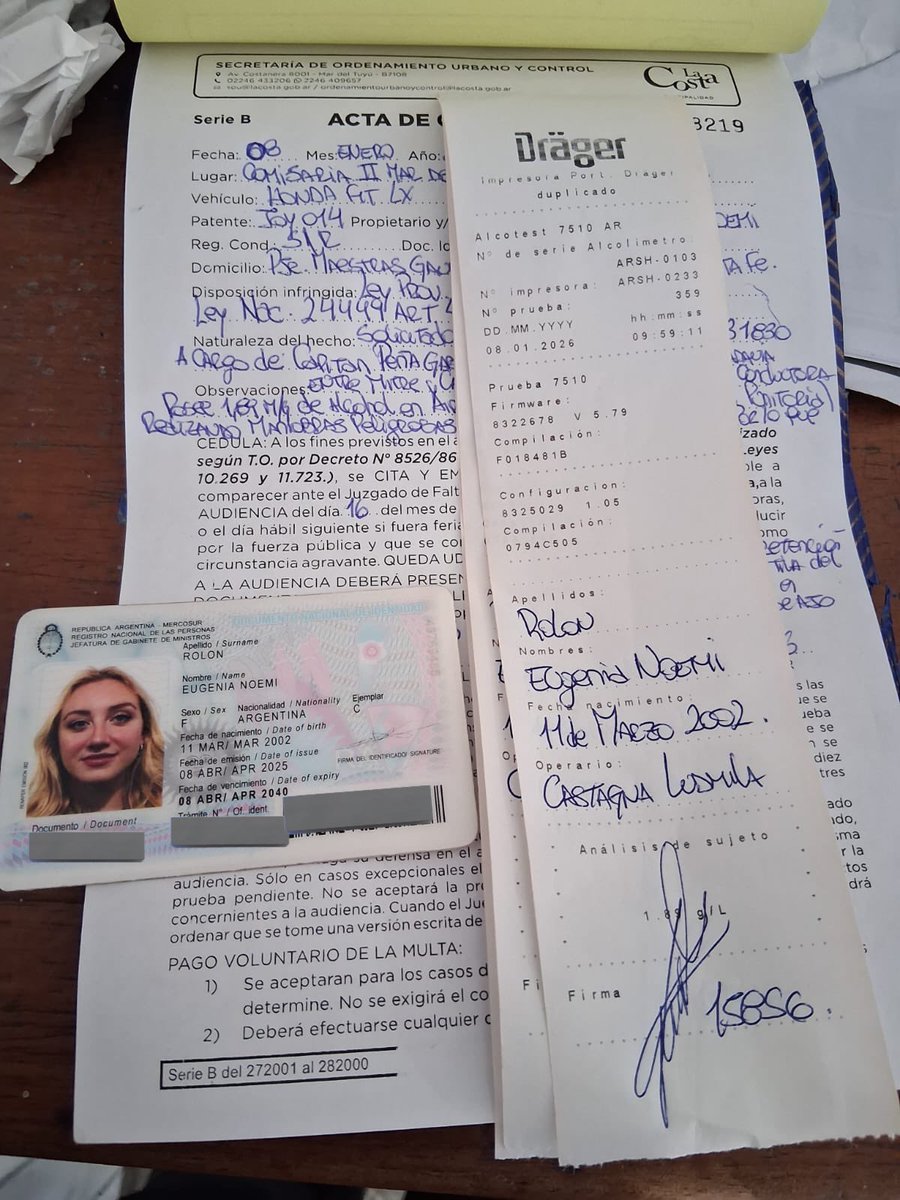 SECRETARÍA DE ORDENAMIENTO URBANO Y CONTROL
Av. Costanera 8001 - Mar del Tuyú - B7108
02246 433206 2246 409657
sou@lacosta.gob.ar / ordenamientourbanoycontrol@lacosta.gob.ar
La Costa
Serie B ACTA DE 3219
Fecha: 08 Mes: ENERO Año:
Lugar: COMISARIA II MAR DE
Vehículo: HONDA FIT LX
Patente: JOY 014 Propietario y/
Reg. Cond.: S/R Doc. Id
Domicilio: PJE. MAESTRAS
TA FE.
Disposición infringida: LEY PROV.
LEY NAC. 24449 ART.
Naturaleza del hecho: SOLICITADO
31830
A CARGO DE CAPITAN PEÑA
CONDUCTORA
Observaciones: ENTRE MITRE Y
POSEE 1,89 M/G DE ALCOHOL EN
REALIZANDO MANIOBRAS PELIGROSAS
DE LO QUE
CEDULA: A los fines previstos en el
según T.O. por Decreto Nº 8526/86
10.269 y 11.723.), se CITA Y EM
comparecer ante el Juzgado de Falt
AUDIENCIA del día 16 del mes de
o el día hábil siguiente si fuera feria
por la fuerza pública y que se co
circunstancia agravante. QUEDA UD
A LA AUDIENCIA DEBERÁ PRESEN
Dräger
Impresora Port. Dräger
duplicado
Alcotest 7510 AR
Nº de serie Alcolimetro:
ARSH-0103
Nº impresora: ARSH-0233
Nº prueba: 359
DD.MM.YYYY hh:mm:ss
08.01.2026 09:59:11
Prueba 7510
Firmware:
8322678 V 5.79
Compilación:
F018481B
Configuracion:
8325029 1.05
Compilación:
0794C505
Apellidos:
Rolon
Nombres:
Eugenia Noemi
Fecha nacimiento:
11 de Marzo 2002.
Operario:
CASTAGNA LUDMILA
Análisis de sujeto
1.89 g/L
Firma
15856.
REPUBLICA ARGENTINA - MERCOSUR
REGISTRO NACIONAL DE LAS PERSONAS
JEFATURA DE GABINETE DE MINISTROS
DOCUMENTO NACIONAL DE IDENTIDAD
Apellido / Surname
ROLON
Nombre / Name
EUGENIA NOEMI
Sexo / Sex Nacionalidad / Nationality Ejemplar
F ARGENTINA C
Fecha de nacimiento / Date of birth
11 MAR/ MAR 2002
Fecha de emisión / Date of issue
08 ABR/ APR 2025
FIRMA DEL IDENTIFICADO/ SIGNATURE
Fecha de vencimiento / Date of expiry
08 ABR/ APR 2040
Trámite Nº / Of. ident.
Documento / Document
su defensa en el a
audiencia. Sólo en casos excepcionales el
prueba pendiente. No se aceptará la pre
concernientes a la audiencia. Cuando el Jue
ordenar que se tome una versión escrita de
PAGO VOLUNTARIO DE LA MULTA:
1) Se aceptaran para los casos d
determine. No se exigirá el co
2) Deberá efectuarse cualquier c
Serie B del 272001 al 282000